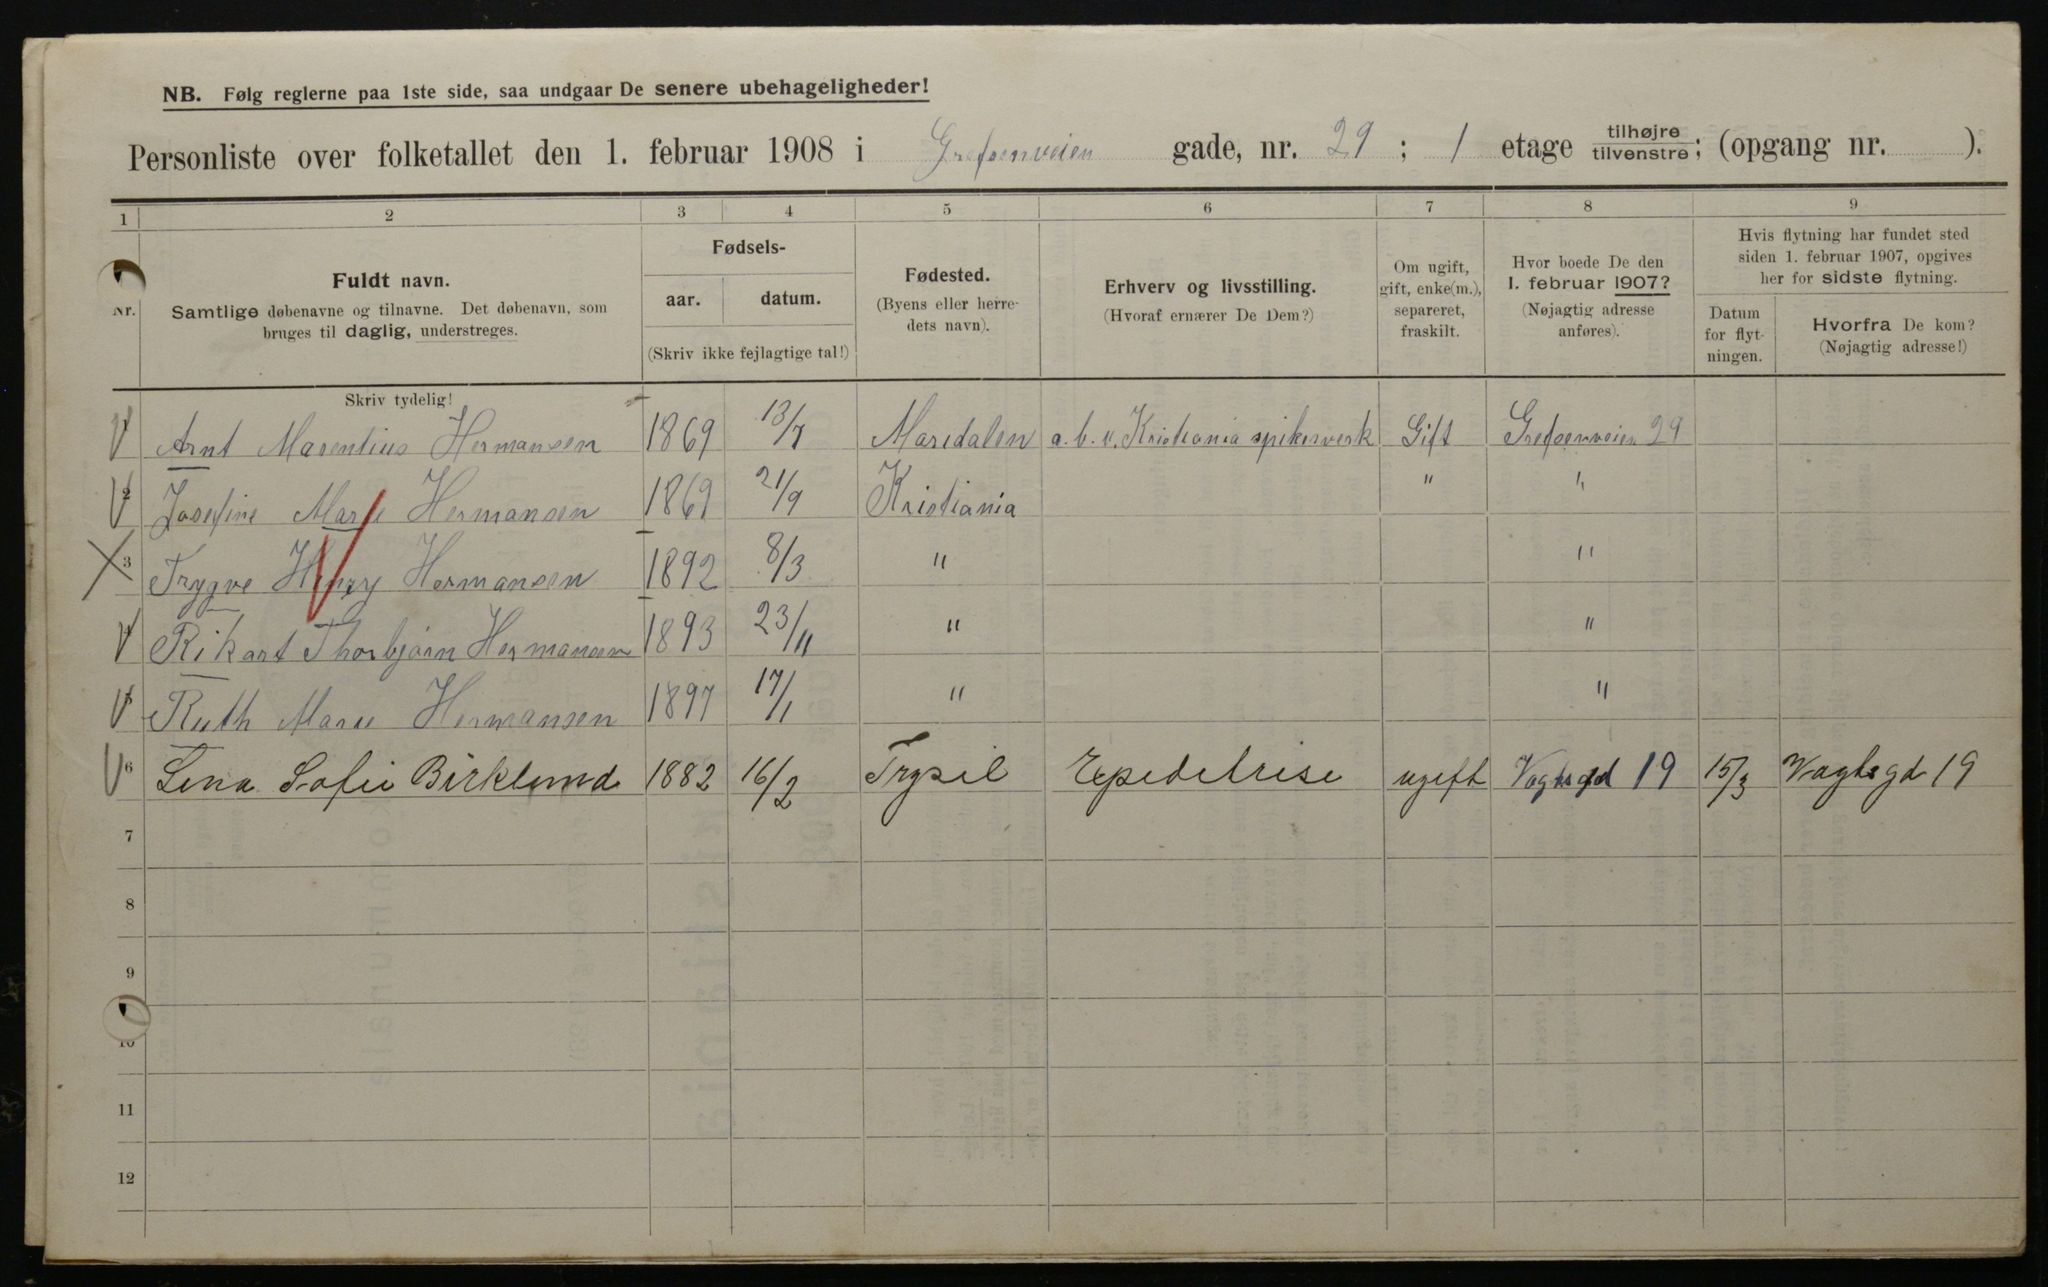 NB. Følg reglerne paa 1ste side, saa undgaar De senere ubehageligheder!
Personliste over folketallet den 1. februar 1908 i Grefsenveien gade, nr. 29 ; 1 etage tilhøjre tilvenstre; (opgang nr. ).
1 2 3 4 5 6 7 8 9
Nr.
Fuldt navn.
Samtlige døbenavne og tilnavne. Det døbenavn, som
bruges til daglig, understreges.
Skriv tydelig!
Fødsels-
aar. datum.
(Skriv ikke fejlagtige tal!)
Fødested.
(Byens eller herre-
dets navn).
Erhverv og livsstilling.
(Hvoraf ernærer De Dem?)
Om ugift,
gift, enke(m.),
separeret,
fraskilt.
Hvor boede De den
1. februar 1907?
(Nøjagtig adresse
anføres).
Hvis flytning har fundet sted
siden 1. februar 1907, opgives
her for sidste flytning.
Datum
for flyt-
ningen.
Hvorfra De kom?
(Nøjagtig adresse!)
Arnt Marentius Hermansen 1869 13/7 Maridalen a.b.v. Kristiania spikerverk Gift Grefsenveien 29
2 Josefine Marie Hermansen 1869 21/9 Kristiania " "
3 Trygve Henry Hermansen 1892 8/3 " "
Rikart Thorbjørn Hermansen 1893 23/11 " "
Ruth Marie Hermansen 1897 17/1 " "
6 Lena Sofie Birklund 1882 16/2 Trysil Expedetrise ugift Vogtsgd 19 15/3 Vogtsgd 19
7
8
9
10
11
12